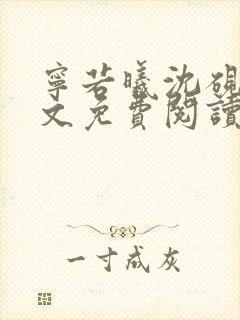 寧若曦沈硯
文免費閱讀
一寸成灰